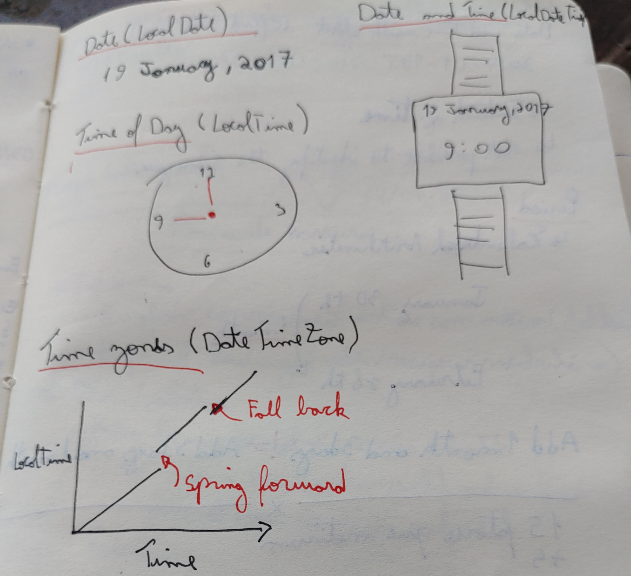 Date (LocalDate)
19 January, 2017
Time of Day (LocalTime)
12
9
3
6
Date and Time (LocalDateTim
19 January, 2017
9:00
Time zones (DateTimeZone)
Fall back
LocalTime
Spring forward
Time